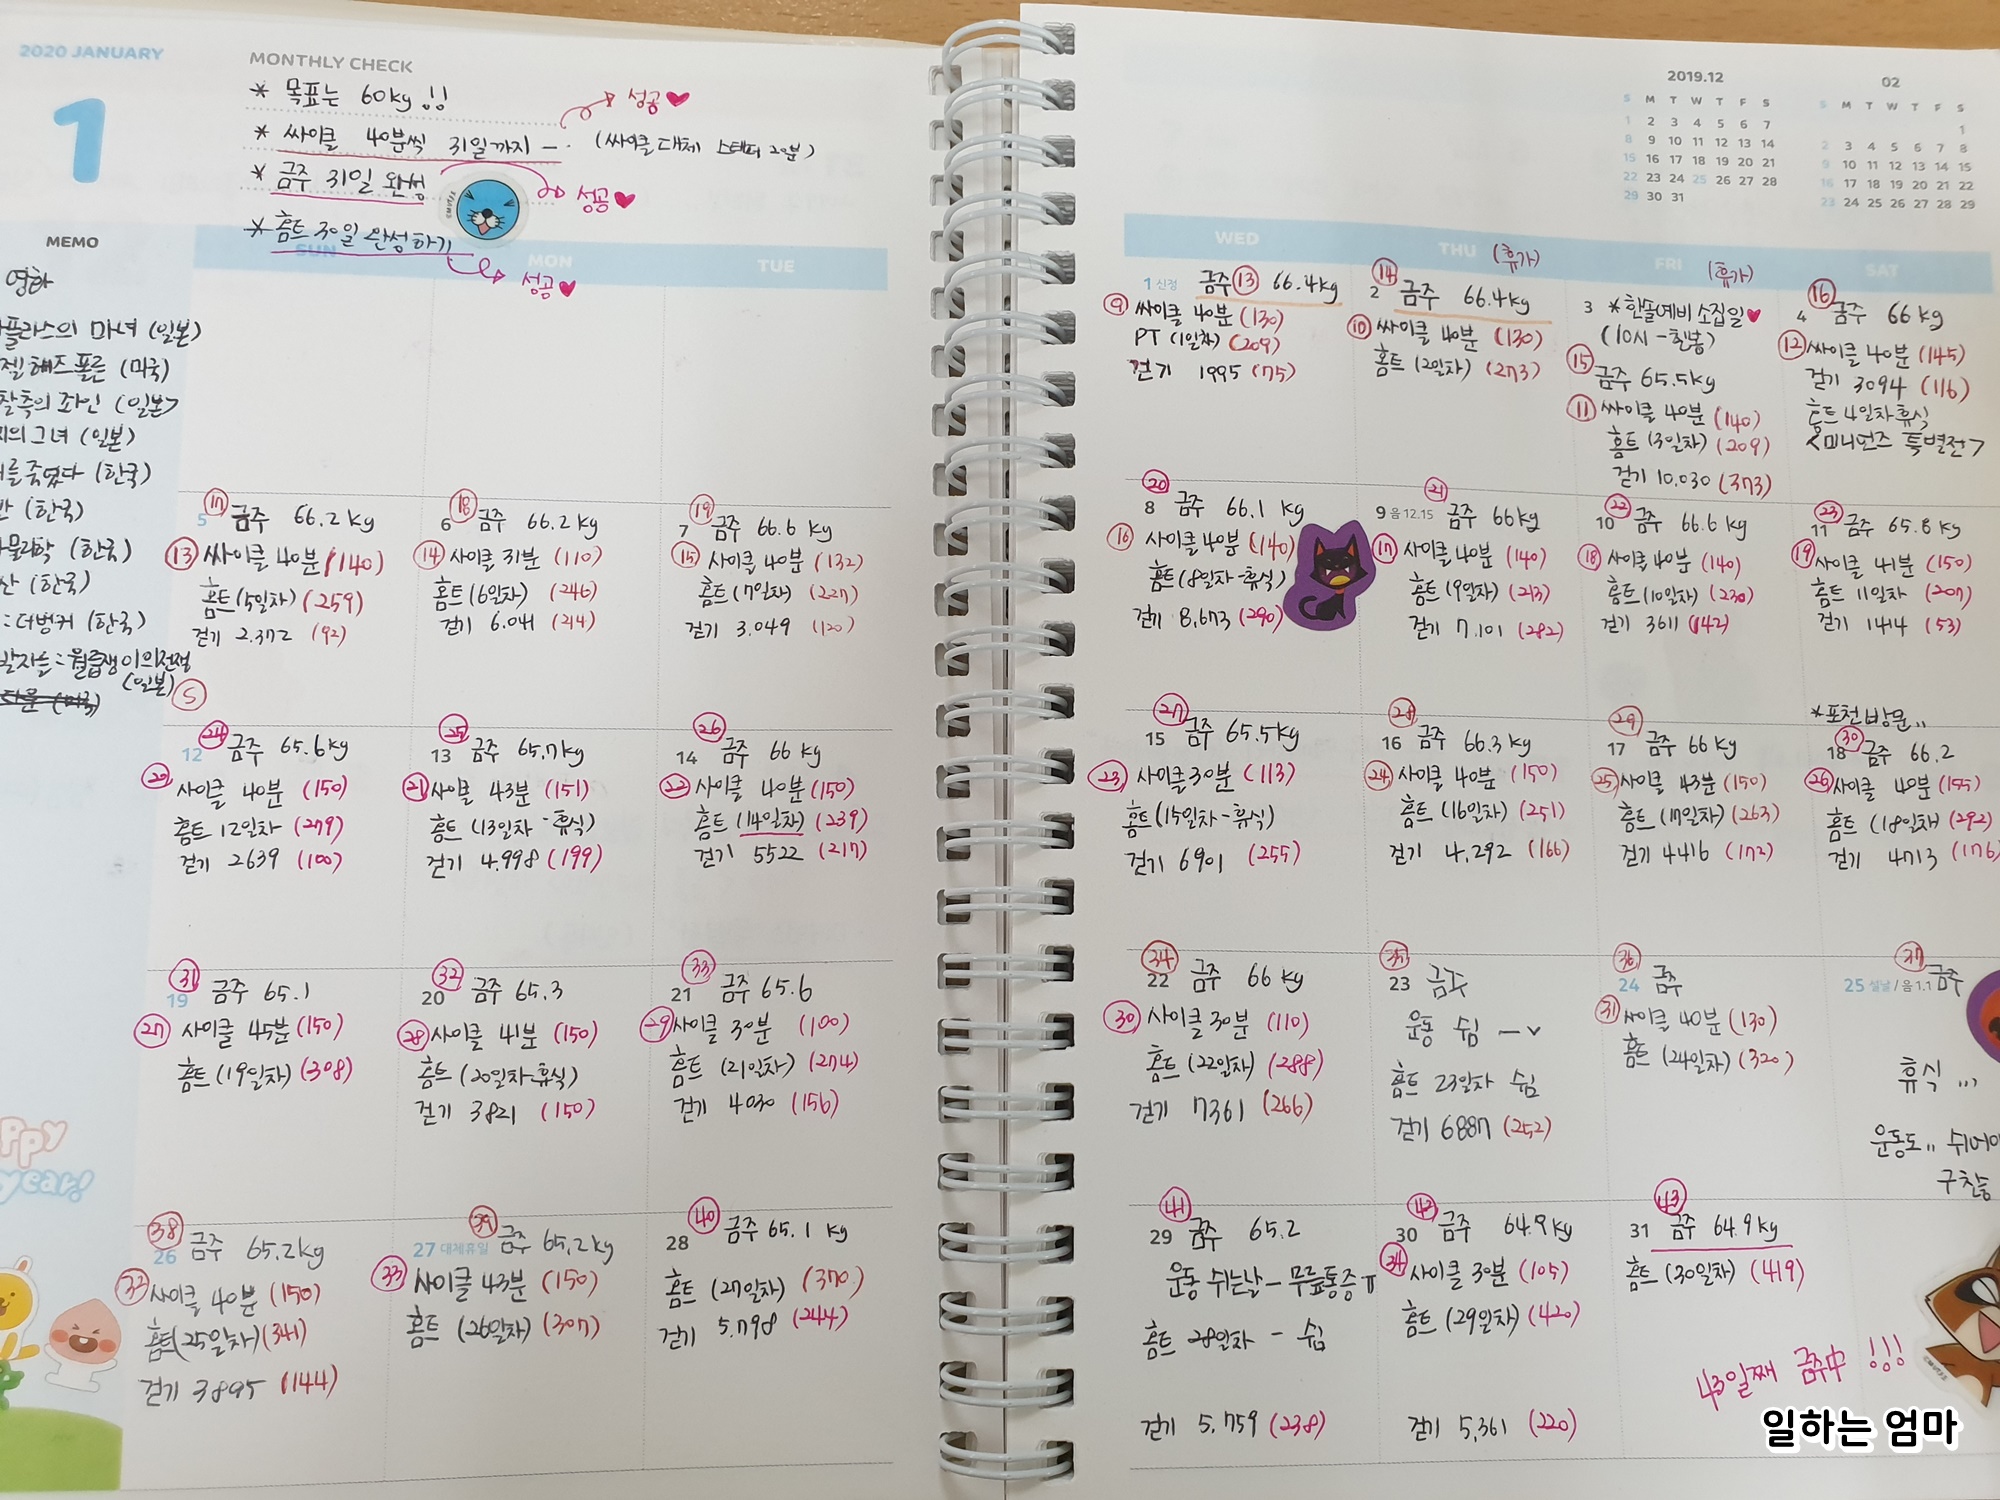 2020 JANUARY
1
MONTHLY CHECK
* 목표는 60kg !!
* 싸이클 40분씩 31일까지 - · (싸이클 대체 스텝퍼 20분)
성공♥
* 금주 31일 완성
성공♥
* 홈트 30일 완성하기
성공♥
MEMO
영화
플라스의 마녀 (일본)
젤 해즈 폴른 (미국)
찰측의 죄인 (일본)
의 그녀 (일본)
를 죽였다 (한국)
(한국)
물리학 (한국)
산 (한국)
: 더벙커 (한국)
발자는: 월급쟁이의 전쟁
(일본)
5
ppy
year!
SUN
MON
TUE
17
5 금주 66.2 kg
13 싸이클 40분 (140)
홈트 (5일차) (259)
걷기 2.372 (92)
18
6 금주 66.2 kg
14 사이클 31분 (110)
홈트 (6일차) (246)
걷기 6.041 (214)
19
7 금주 66.6 kg
15 사이클 40분 (132)
홈트 (7일차) (227)
걷기 3.049 (120)
24
12 금주 65.6kg
20 사이클 40분 (150)
홈트 12일차 (279)
걷기 2639 (100)
25
13 금주 65.7kg
21 사이클 43분 (151)
홈트 (13일차 - 휴식)
걷기 4.998 (199)
26
14 금주 66 kg
22 사이클 40분 (150)
홈트 (14일차) (239)
걷기 5522 (217)
31
19 금주 65.1
27 사이클 45분 (150)
홈트 (19일차) (308)
32
20 금주 65.3
28 사이클 41분 (150)
홈트 (20일차-휴식)
걷기 3821 (150)
33
21 금주 65.6
29 사이클 30분 (100)
홈트 (21일차) (274)
걷기 4030 (156)
38
26 금주 65.2kg
32 사이클 40분 (150)
홈트(25일차)(341)
걷기 3895 (144)
39
27 대체휴일 금주 65.2kg
33 사이클 43분 (150)
홈트 (26일차) (307)
40
28 금주 65.1 kg
홈트 (27일차) (370)
걷기 5.798 (244)
2019.12
S M T W T F S
1 2 3 4 5 6 7
8 9 10 11 12 13 14
15 16 17 18 19 20 21
22 23 24 25 26 27 28
29 30 31
02
S M T W T F S
1
2 3 4 5 6 7 8
9 10 11 12 13 14 15
16 17 18 19 20 21 22
23 24 25 26 27 28 29
WED
THU (휴가)
FRI (휴가)
SAT
1 신정 금주 13 66.4kg
9 싸이클 40분 (130)
PT (1일차) (209)
걷기 1995 (75)
14
2 금주 66.4kg
10 싸이클 40분 (130)
홈트 (2일차) (273)
3 *한돌예비 소집일♥
(10시 - 한봄)
15 금주 65.5kg
11 싸이클 40분 (140)
홈트 (3일차) (209)
걷기 10.030 (373)
16
4 금주 66 kg
12 싸이클 40분 (145)
걷기 3094 (116)
홈트 4일차 휴식
<미니언즈 특별전>
20
8 금주 66.1 kg
16 사이클 40분 (140)
홈트 (8일차-휴식)
걷기 8,673 (290)
21
9 음 12.15 금주 66kg
17 사이클 40분 (140)
홈트 (9일차) (213)
걷기 7.101 (282)
22
10 금주 66.6 kg
18 사이클 40분 (140)
홈트 (10일차) (230)
걷기 3611 (142)
23
11 금주 65.8 kg
19 사이클 41분 (150)
홈트 11일차 (207)
걷기 1414 (53)
27
15 금주 65.5kg
23 사이클 30분 (113)
홈트 (15일차-휴식)
걷기 6901 (255)
28
16 금주 66.3 kg
24 사이클 40분 (150)
홈트 (16일차) (251)
걷기 4,292 (166)
29
17 금주 66 kg
25 사이클 43분 (150)
홈트 (17일차) (263)
걷기 4416 (172)
*포천 방문,,
30
18 금주 66.2
26 사이클 40분 (155)
홈트 (18일차) (292)
걷기 4713 (176)
34
22 금주 66 kg
30 사이클 30분 (110)
홈트 (22일차) (288)
걷기 7361 (266)
35
23 금주
운동 쉼
홈트 23일차 쉼
걷기 6887 (252)
36
24 금주
31 사이클 40분 (130)
홈트 (24일차) (320)
37
25 설날/음 1.1 금주
휴식 ...
운동도,, 쉬어야
구찬승
41
29 금주 65.2
운동 쉬는날 - 무릎통증ㅠ
홈트 28일차 - 쉼
걷기 5,759 (238)
42
30 금주 64.9 kg
34 사이클 30분 (105)
홈트 (29일차) (420)
걷기 5,361 (220)
43
31 금주 64.9 kg
홈트 (30일차) (419)
43일째 금주中 !!!
일하는 엄마